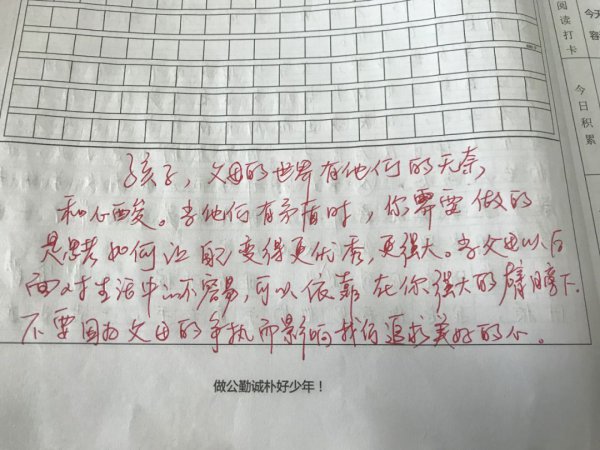 阅读打卡
今天
容
今日积累
孩子，父母的世界有他们的无奈，
和心酸。当他们有矛盾时，你需要做的
是思考如何让自己变得更优秀，更强大。当父母以后
面对生活中的不容易，可以依靠在你强大的臂膀下。
不要因为父母的争执而影响我们追求美好的心。
做公勤诚朴好少年！